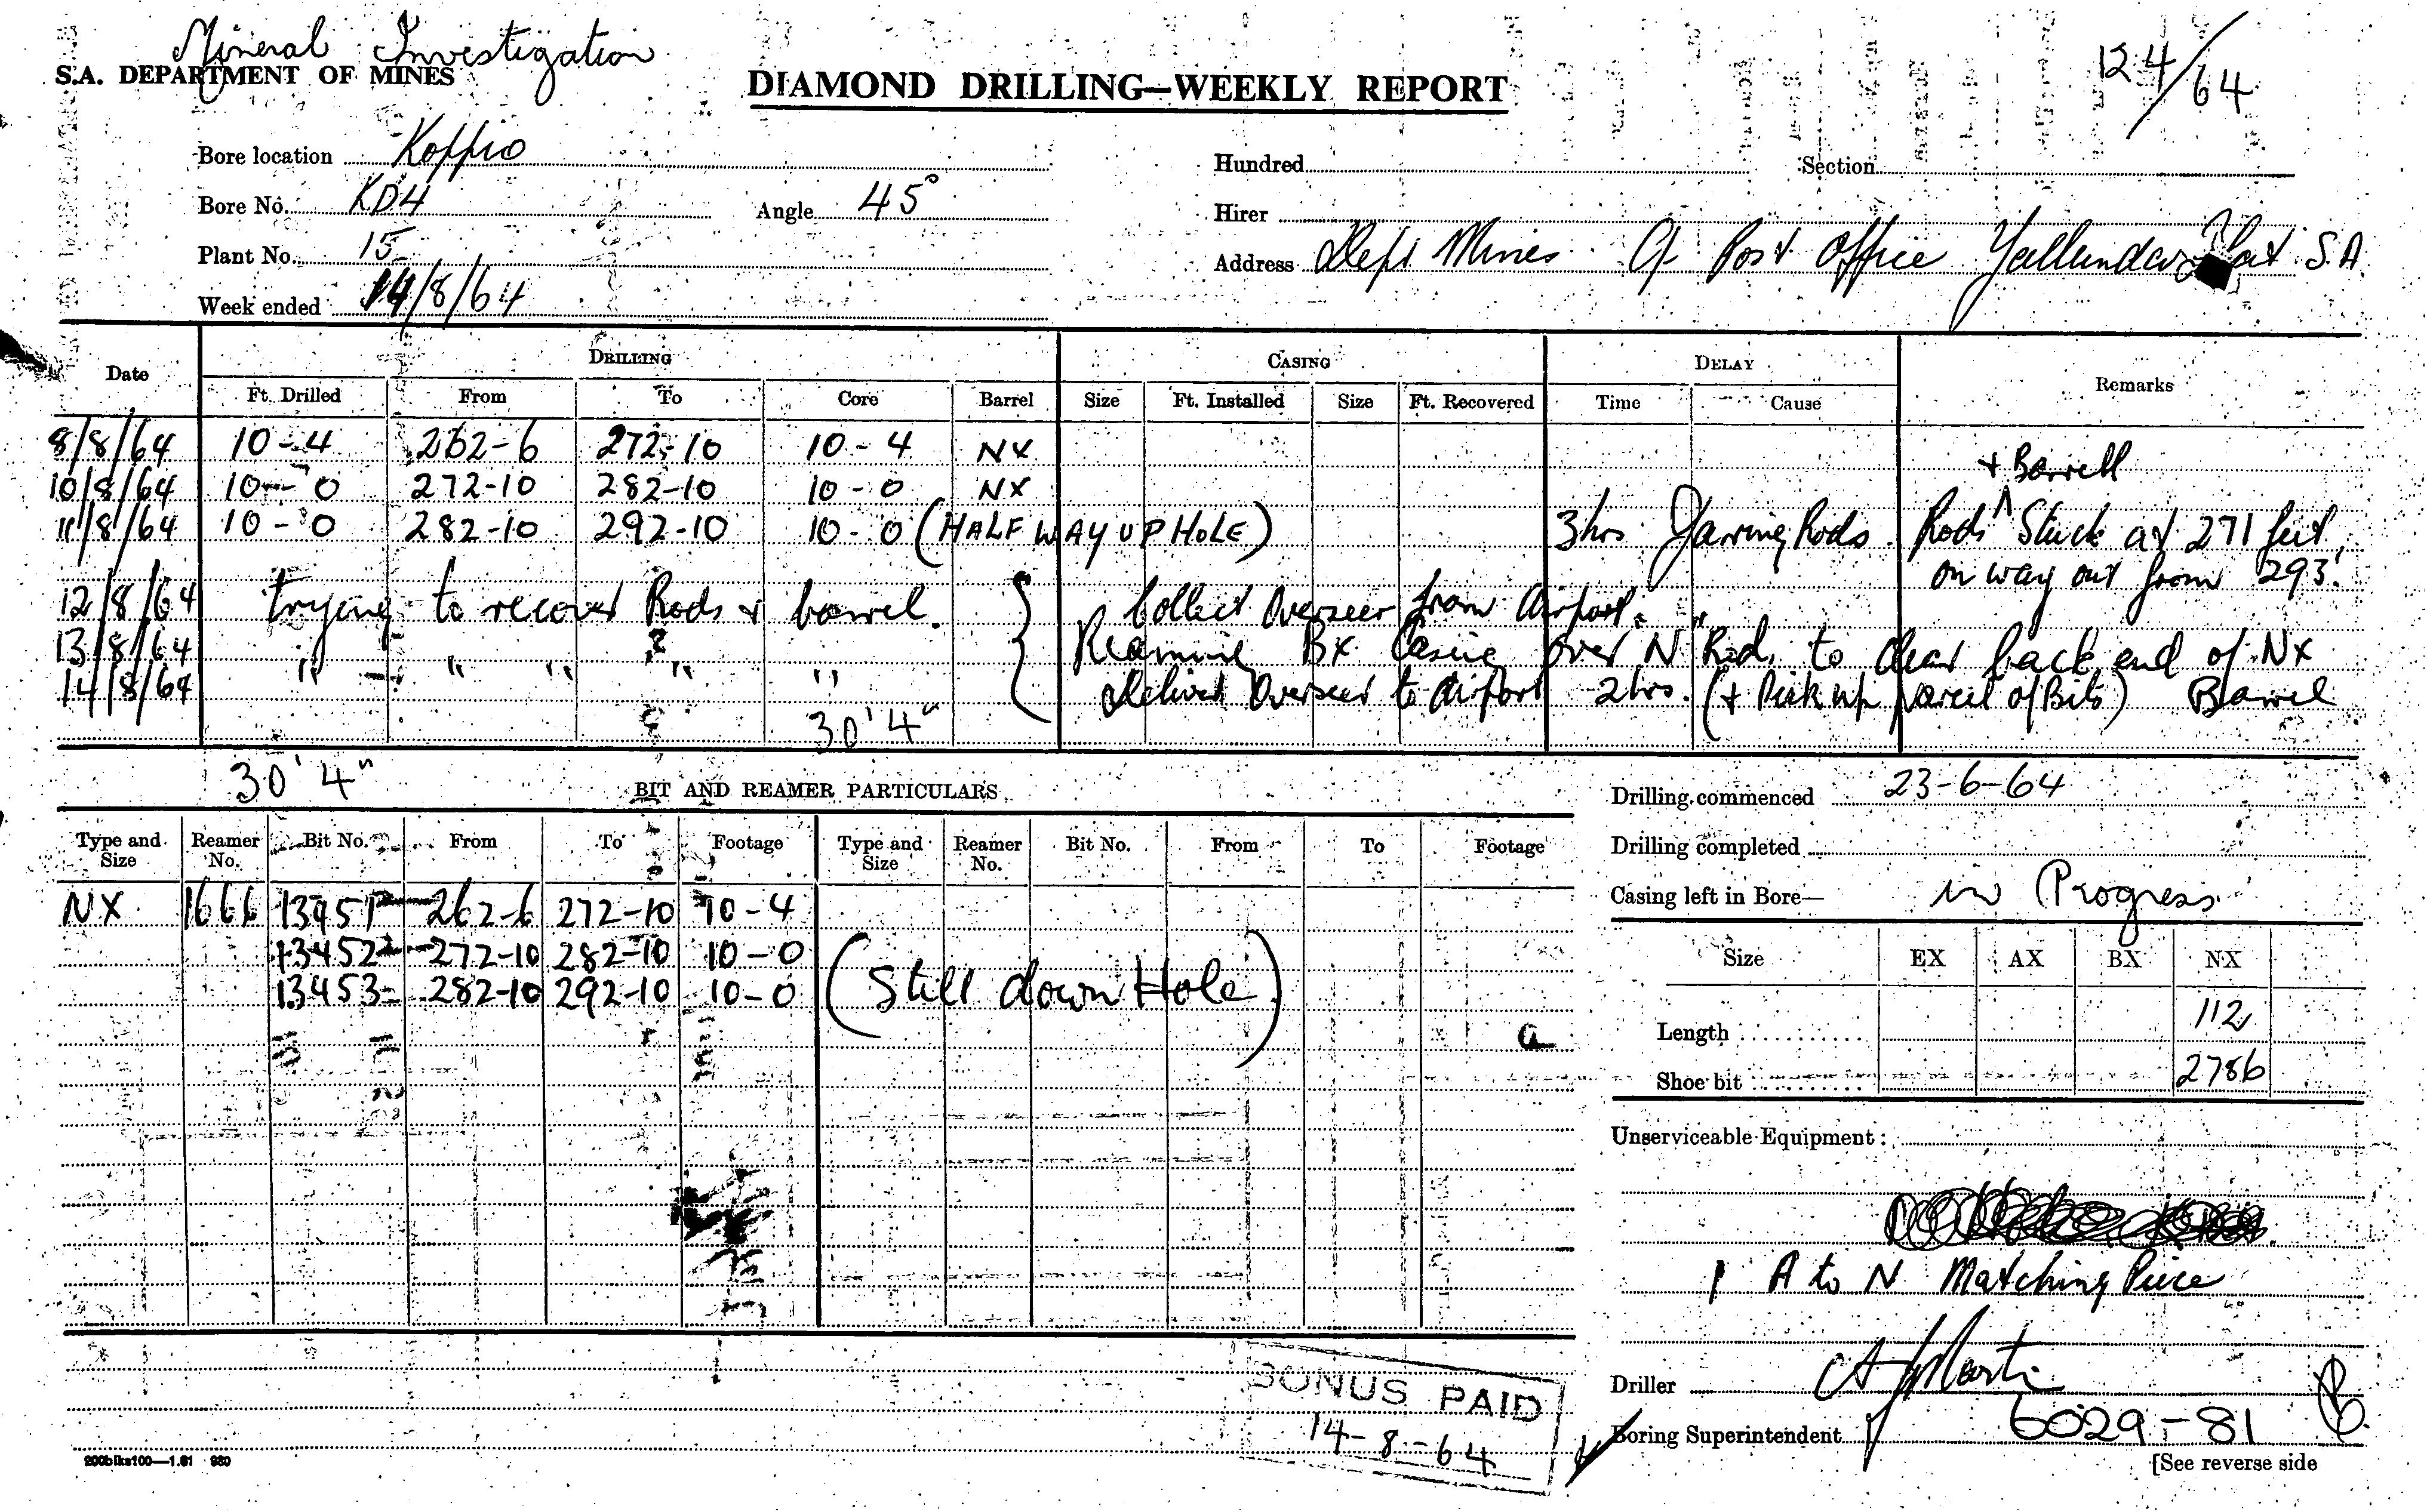 Mineral Investigation
S.A. DEPARTMENT OF MINES
DIAMOND DRILLING—WEEKLY REPORT
124/64
Bore location Koppio
Hundred Section
Bore No. KD4 Angle 45°
Hirer
Plant No. 15
Address Dept Mines C/- Post Office Yallunda Flat S.A
Week ended 14/8/64
Date DRILLING CASING DELAY Remarks
Ft. Drilled From To Core Barrel Size Ft. Installed Size Ft. Recovered Time Cause
8/8/64 10-4 262-6 272-10 10-4 NX
+ Barrell
10/8/64 10-0 272-10 282-10 10-0 NX
11/8/64 10-0 282-10 292-10 10-0 (HALF WAY UP HOLE) 3hrs Jarring Rods. Rods ^ Stuck at 271 feet
on way out from 293'
12/8/64 trying to recover Rods & barrel. Collect Overseer from Airport.
13/8/64 " " " " " Reaming BX Casing over "N" Rods to clear back end of NX
14/8/64 Deliver Overseer to Airport 2hrs. (+ Pick up parcel of Bits) Barrel
30'4"
30'4"
BIT AND REAMER PARTICULARS
Drilling commenced 23-6-64
Type and Size Reamer No. Bit No. From To Footage Type and Size Reamer No. Bit No. From To Footage
Drilling completed
Casing left in Bore— in Progress
NX 1666 13451 262-6 272-10 10-4
13452 272-10 282-10 10-0
13453 282-10 292-10 10-0 (Still down Hole)
Size EX AX BX NX
Length 112
Shoe bit 2786
Unserviceable Equipment:
1 A to N Matching Piece
BONUS PAID
14-8-64
Driller A J Martin
Boring Superintendent
6029-81
200blks100—1.61 980
[See reverse side